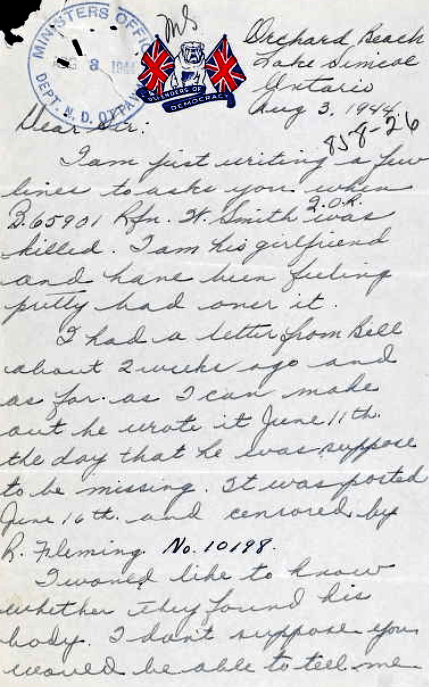 MINISTERS OFFICE
AUG 8 1944
DEPT. N. D. OTTAWA
DEFENDERS OF
DEMOCRACY
Orchard Beach
Lake Simcoe
Ontario
Aug 3, 1944.
858-26
Dear Sir:
I am just writing a few
lines to asks you when
B.65901 Rfn. W. Smith Q.O.R. was
killed. I am his girlfriend
and have been feeling
pretty bad over it.
I had a letter from Bill
about 2 weeks ago and
as far as I can make
out he wrote it June 11th.
the day that he was suppose
to be missing. It was posted
June 16th. and censored by
R. Fleming. No. 10198.
I would like to know
whether they found his
body. I dont suppose you
would be able to tell me